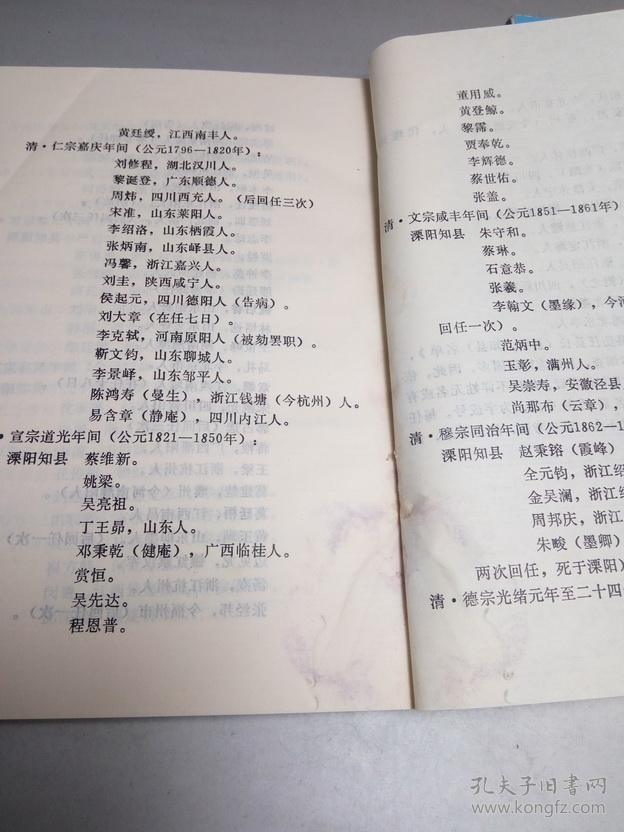 黄廷绶，江西南丰人。
清·仁宗嘉庆年间（公元1796—1820年）：
刘修程，湖北汉川人。
黎诞登，广东顺德人。
周炜，四川西充人。（后回任三次）
宋准，山东莱阳人。
李绍洛，山东栖霞人。
张炳南，山东峄县人。
冯馨，浙江嘉兴人。
刘圭，陕西咸宁人。
侯起元，四川德阳人（告病）。
刘大章（在任七日）。
李克轼，河南原阳人（被劾罢职）。
靳文钧，山东聊城人。
李景峄，山东邹平人。
陈鸿寿（曼生），浙江钱塘（今杭州）人。
易含章（静庵），四川内江人。
·宣宗道光年间（公元1821—1850年）：
溧阳知县 蔡维新。
姚梁。
吴亮祖。
丁王昴，山东人。
邓秉乾（健庵），广西临桂人。
赏恒。
吴先达。
程恩普。
董用威。
黄登鲸。
黎霈。
贾奉乾。
李辉德。
蔡世佑。
张盖。
清·文宗咸丰年间（公元1851—1861年）
溧阳知县 朱守和。
蔡琳。
石意恭。
张羲。
李翰文（墨缘），今河
回任一次）。
范炳中。
玉彰，满州人。
吴崇寿，安徽泾县
尚那布（云章），
清·穆宗同治年间（公元1862—1
溧阳知县 赵秉镕（霞峰）
全元钧，浙江绍
金吴澜，浙江
周邦庆，浙江
朱畯（墨卿）
两次回任，死于溧阳）
清·德宗光绪元年至二十四
孔夫子旧书网
www.kongfz.com